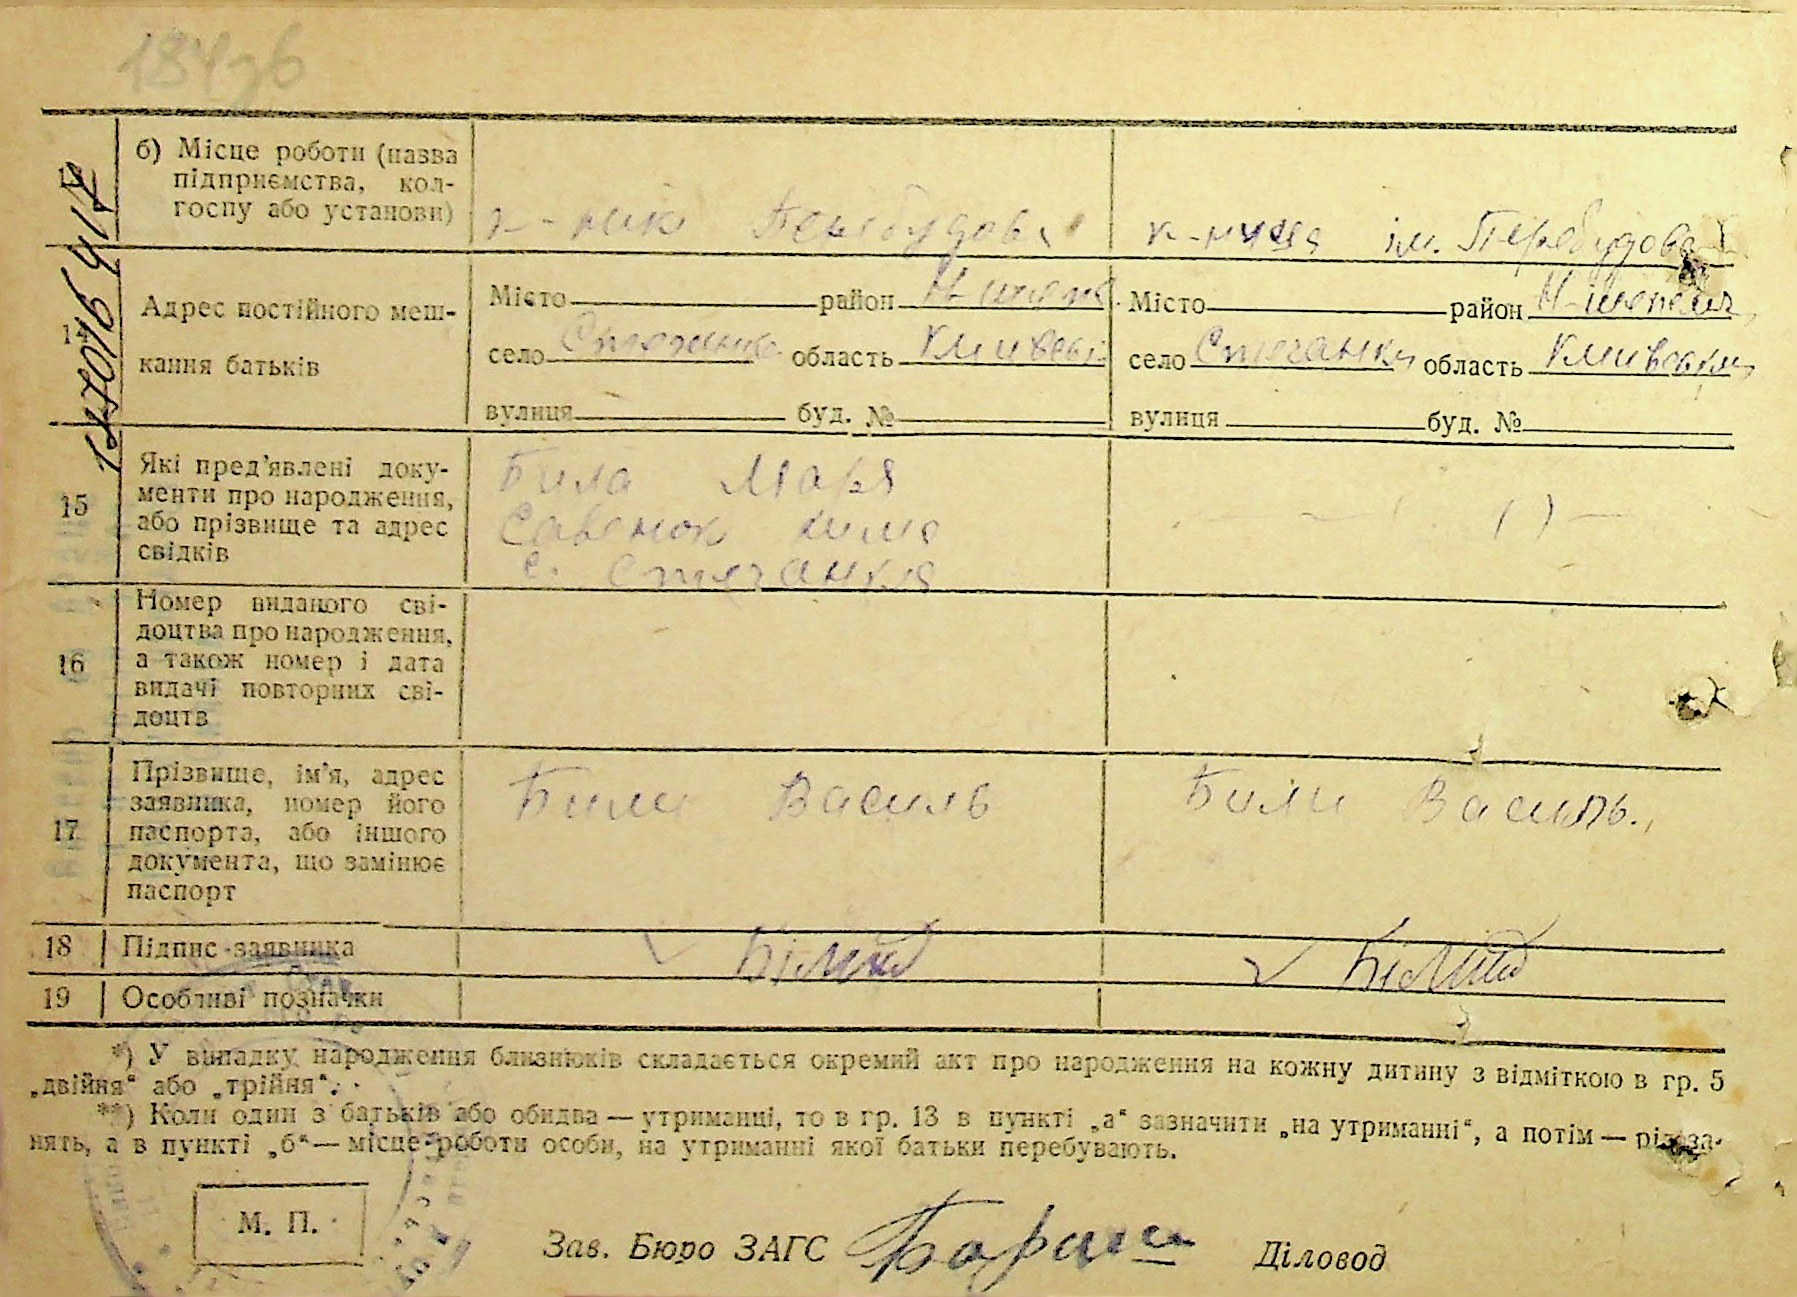 184зб
б) Місце роботи (назва
підприємства, кол-
госпу або установи)
к-ник Перебудова
к-ниця ім. Перебудова
Адрес постійного меш-
кання батьків
Місто район
село область
вулиця буд. №
Місто район
село Стеганки область Київська
вулиця буд. №
15
Які пред’явлені доку-
менти про народження,
або прізвище та адрес
свідків
Била Маря
Савенок
с.
16
Номер виданого сві-
доцтва про народження,
а також номер і дата
видачі повторних сві-
доцтв
17
Прізвище, ім’я, адрес
заявника, номер його
паспорта, або іншого
документа, що замінює
паспорт
Били Василь
Били Василь.
18 Підпис заявника
Білий
Білий
19 Особливі позначки
*) У випадку народження близнюків складається окремий акт про народження на кожну дитину з відміткою в гр. 5
„двійня“ або „трійня“.
**) Коли один з батьків або обидва — утриманці, то в гр. 13 в пункті „а“ зазначити „на утриманні“, а потім — рід за-
нять, а в пункті „б“ — місце роботи особи, на утриманні якої батьки перебувають.
М. П.
Зав. Бюро ЗАГС
Діловод